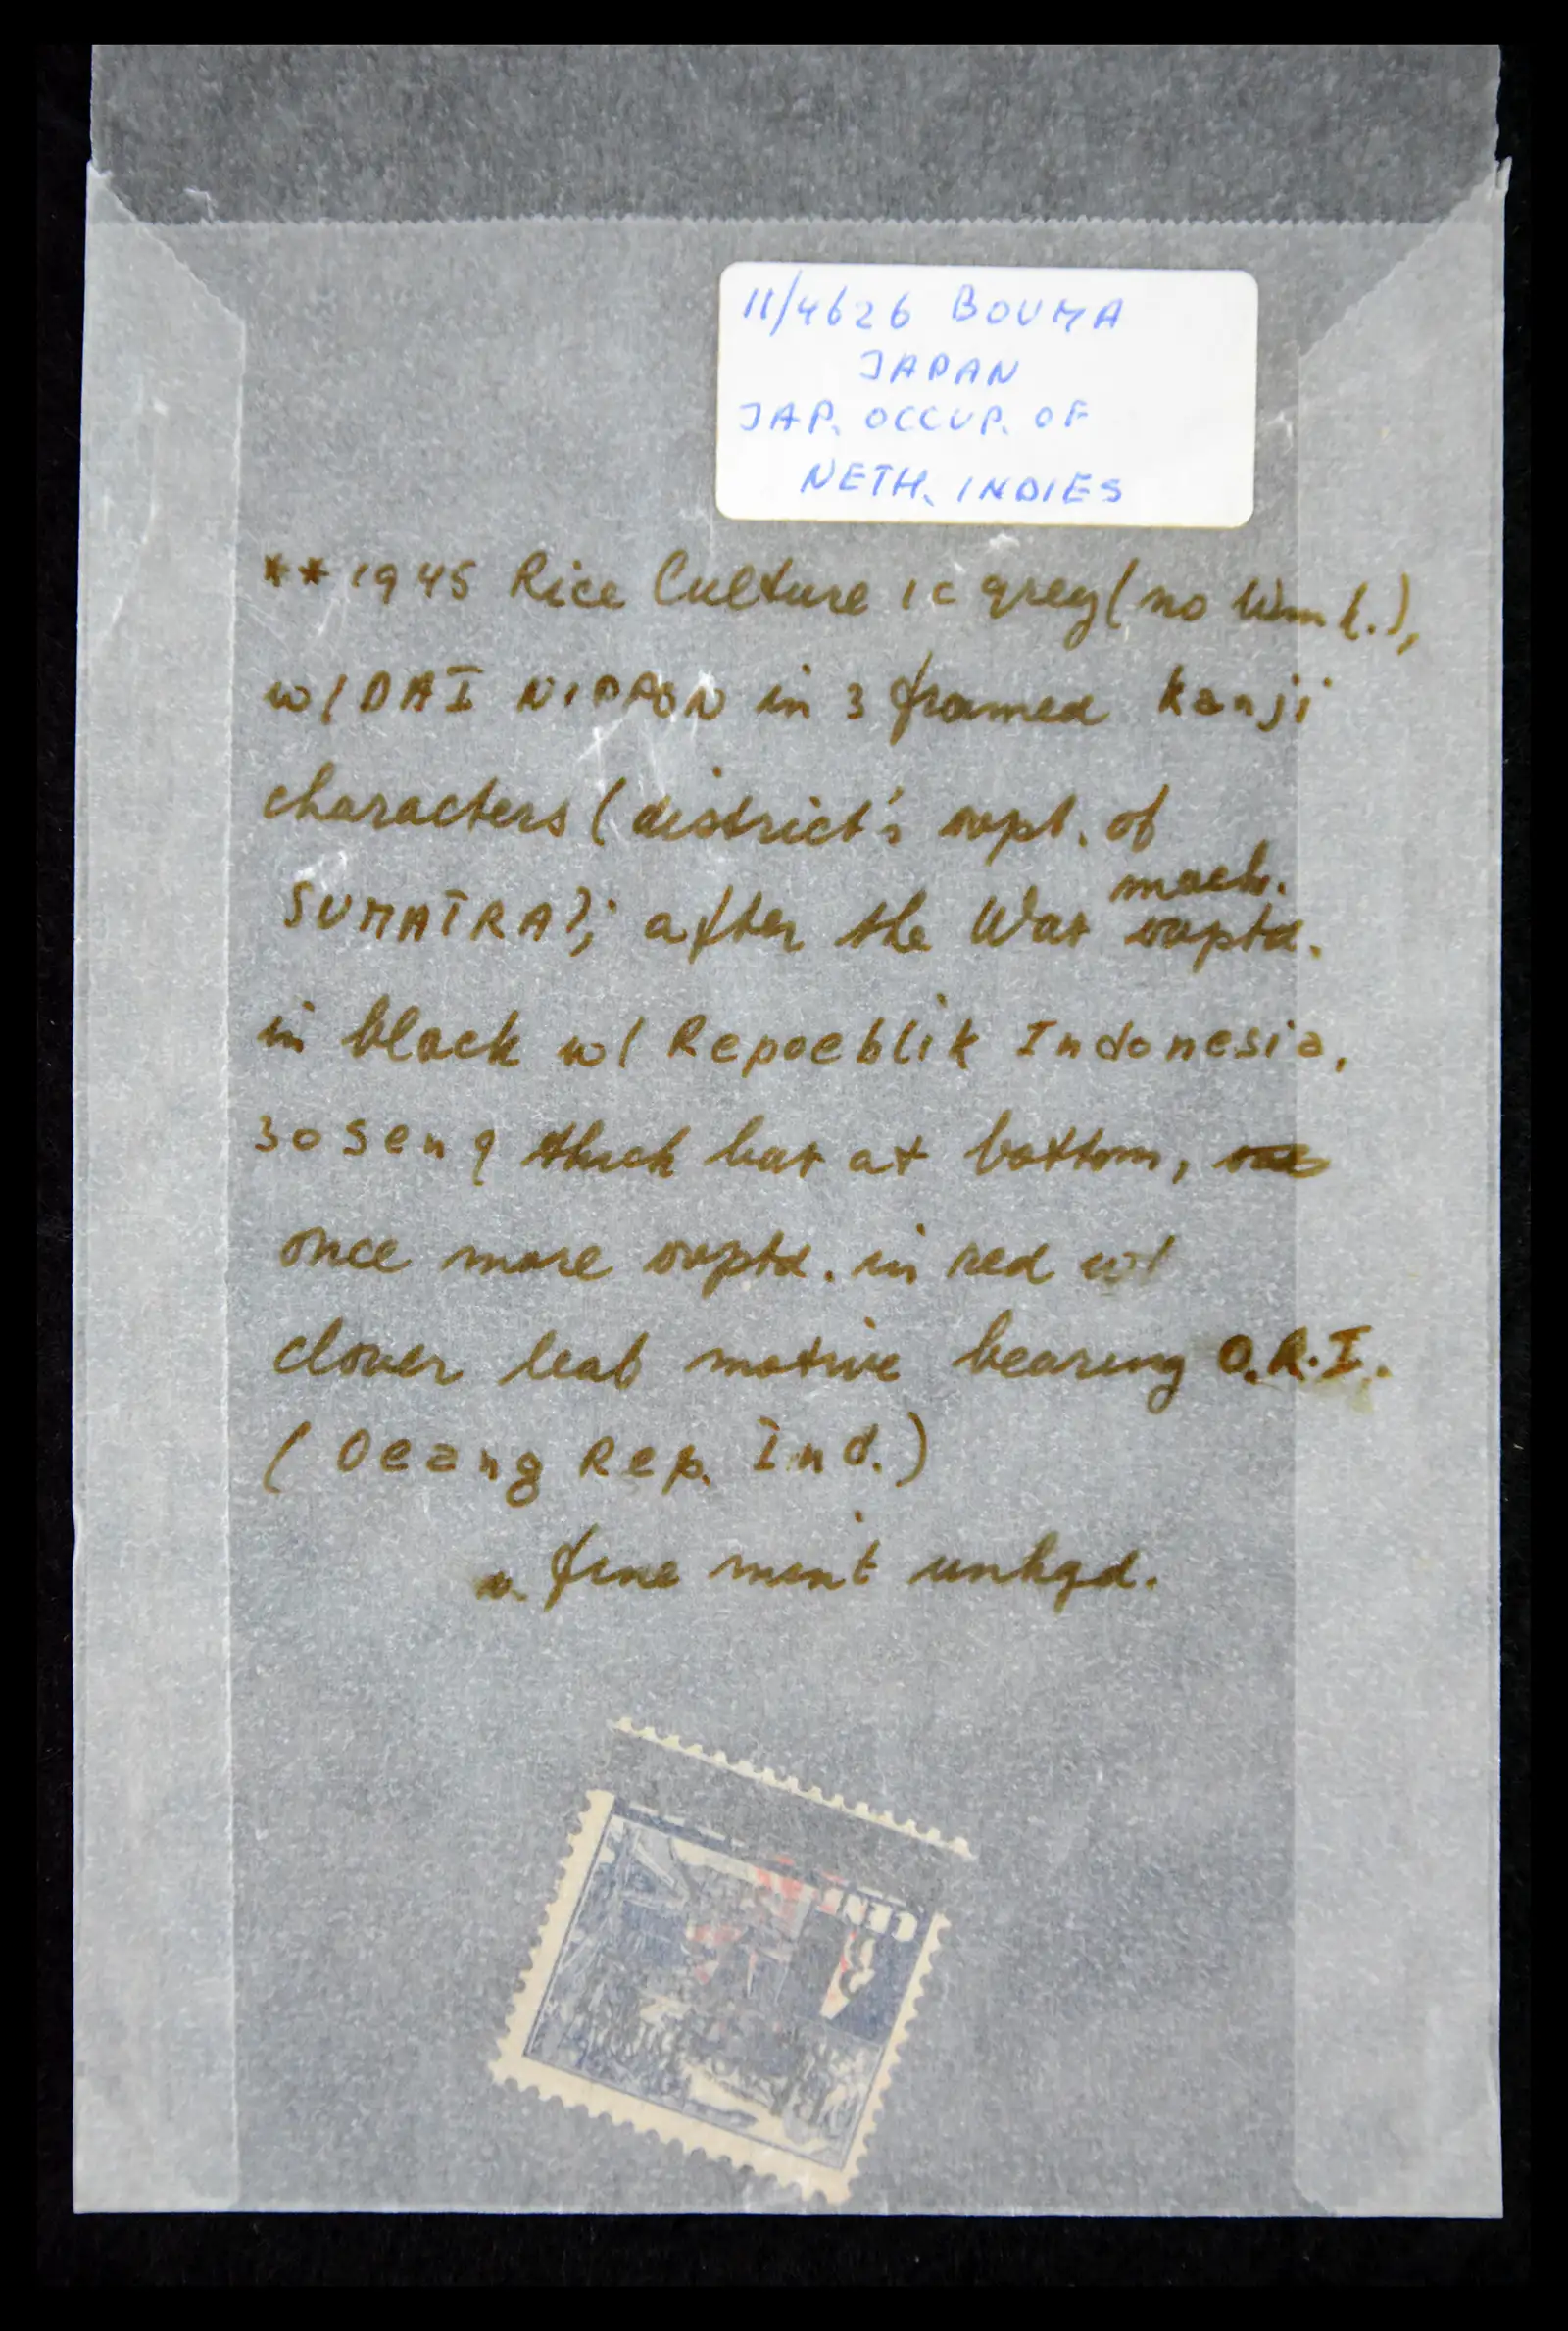 11/4626 BOUMA
JAPAN
JAP. OCCUP. OF
NETH. INDIES
** 1945 Rice Culture 1c grey (no wmk.),
w/ DAI NIPPON in 3 framed kanji
characters (district's ovpt. of
mach.
SUMATRA?; after the War ovptd.
in black w/ Repoeblik Indonesia,
30 sen & thick bar at bottom,
once more ovptd. in red w/
clover leab motive bearing O.R.I.
(Oeang Rep. Ind.)
v. fine mint unhgd.
CENT